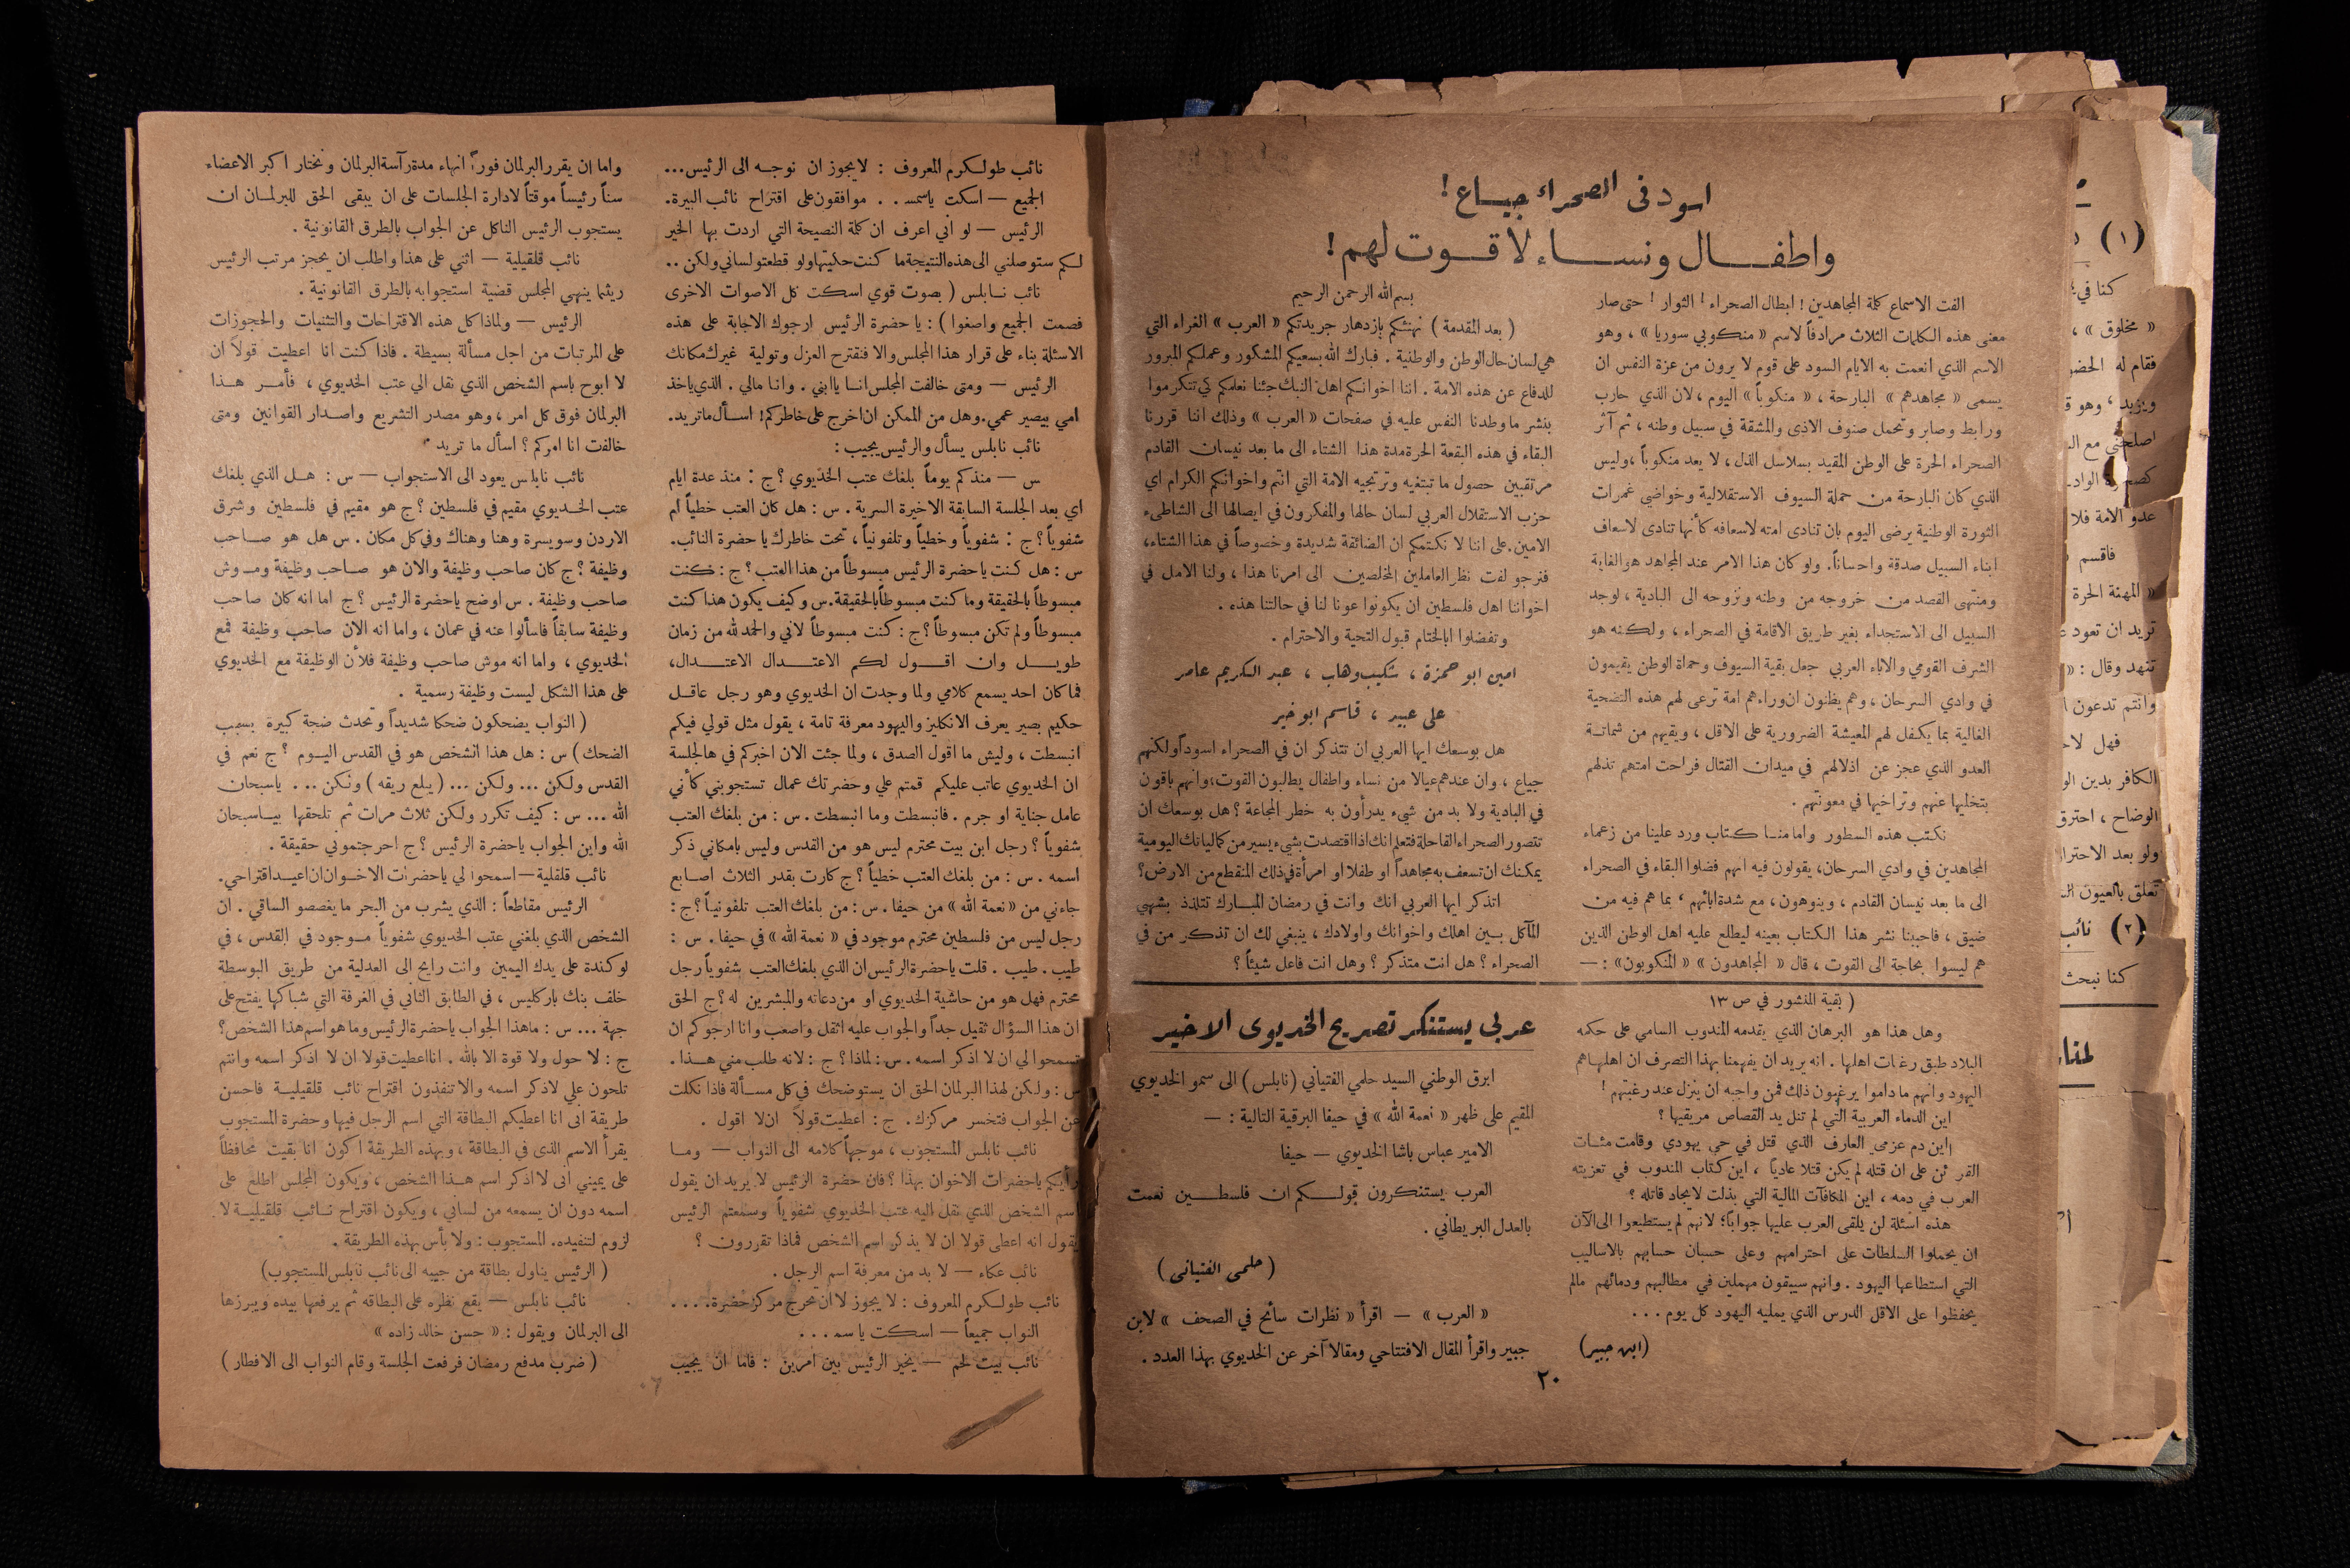 اسود فى الصحراء جيـاع !
واطفـال ونسـاء لا قـوت لهم !
الفت الاسماع كلمة المجاهدين ! ابطال الصحراء ! الثوار ! حتى صار
معنى هذه الكلمات الثلاث مرادفاً لاسم « منكوبي سوريا » ، وهو
الاسم الذي انعمت به الايام السود على قوم لا يرون من عزة النفس ان
يسمى « مجاهدهم » البارحة ، « منكوباً » اليوم ، لان الذي حارب
ورابط وصابر وتحمل صنوف الاذى والمشقة في سبيل وطنه ، ثم آثر
الصحراء الحرة على الوطن المقيد بسلاسل الذل ، لا يعد منكوباً ، وليس
الذي كان البارحة من حملة السيوف الاستقلالية وخواضي غمرات
الثورة الوطنية يرضى اليوم بان تنادى امته لاسعافه كأنها تنادى لاسعاف
ابناء السبيل صدقة واحساناً. ولو كان هذا الامر عند المجاهد هو الغاية
ومنتهى القصد من خروجه من وطنه ونزوحه الى البادية ، لوجد
السبيل الى الاستجداء بغير طريق الاقامة في الصحراء ، ولكنه هو
الشرف القومي والاباء العربي جعل بقية السيوف وحماة الوطن يقيمون
في وادي السرحان ، وهم يظنون ان وراءهم امة ترعى لهم هذه التضحية
الغالية بما يكفل لهم المعيشة الضرورية على الاقل ، ويقيهم من شماتة
العدو الذي عجز عن اذلالهم في ميدان القتال فراحت امتهم تذلهم
بتخليها عنهم وتراخيها في معونتهم .
نكتب هذه السطور وامامنـا كتاب ورد علينا من زعماء
المجاهدين في وادي السرحان، يقولون فيه انهم فضلوا البقاء في الصحراء
الى ما بعد نيسان القادم ، وينوهون ، مع شدة ابائهم ، بما هم فيه من
ضيق ، فاحببنا نشر هذا الكتاب بعينه ليطلع عليه اهل الوطن الذين
هم ليسوا بحاجة الى القوت ، قال « المجاهدون » « المنكوبون» : —
بسم الله الرحمن الرحيم
( بعد المقدمة ) نهنئكم بازدهار جريدتكم « العرب » الغراء التي
هي لسان حال الوطن والوطنية . فبارك الله بسعيكم المشكور وعملكم المبرور
للدفاع عن هذه الامة . اننا اخوانكم اهل النبك جئنا نعلمكم كي تتكرموا
بنشر ما وطدنا النفس عليه في صفحات « العرب » وذلك اننا قررنا
البقاء في هذه البقعة الحرة مدة هذا الشتاء الى ما بعد نيسان القادم
مرتقبين حصول ما تبتغيه وترتجيه الامة التي انتم واخوانكم الكرام اي
حزب الاستقلال العربي لسان حالها والمفكرون في ايصالها الى الشاطىء
الامين. على اننا لا نكتمكم ان الضائقة شديدة وخصوصاً في هذا الشتاء،
فنرجو لفت نظر العاملين المخلصين الى امرنا هذا ، ولنا الامل في
اخواننا اهل فلسطين ان يكونوا عونا لنا في حالتنا هذه .
وتفضلوا ابالختام قبول التحية والاحترام .
امين ابو حمزة ، شكيب وهاب ، عبد الكريم عامر
علي عبيد ، قاسم ابو خير
هل بوسعك ايها العربي ان تتذكر ان في الصحراء اسوداً ولكنهم
جياع ، وان عندهم عيالا من نساء واطفال يطالبون القوت، وانهم باقون
في البادية ولا بد من شيء يدرأون به خطر المجاعة ؟ هل بوسعك ان
تتصور الصحراء القاحلة فتعلم انك اذا اقتصدت بشيء يسير من كمالياتك اليومية
يمكنك ان تسعف به مجاهداً او طفلا او امرأة في ذلك المنقطع من الارض؟
اتذكر ايها العربي انك وانت في رمضان المبارك تتلذذ بشهي
المآكل بـين اهلك واخوانك واولادك ، ينبغي لك ان تذكر من في
الصحراء ؟ هل انت متذكر ؟ وهل انت فاعل شيئاً ؟
( بقية المنشور في ص ١٣
وهل هذا هو البرهان الذي يقدمه المندوب السامي على حكمه
البلاد طبق رغبات اهلها . انه يريد ان يفهمنا بهذا التصرف ان اهلها هم
اليهود وانهم ما داموا يرغبون ذلك فمن واجبه ان ينزل عند رغبتهم !
اين الدماء العربية التي لم تنل يد القصاص مريقيها ؟
اين دم عزمي العارف الذي قتل في حي يهودي وقامت مئـات
القرائن على ان قتله لم يكن قتلا عادياً ، اين كتاب المندوب في تعزيته
العرب في دمه ، اين المكافآت المالية التي بذلت لايجاد قاتله ؟
هذه اسئلة لن يلقى العرب عليها جواباً؛ لانهم لم يستطيعوا الى الآن
ان يحملوا السلطات على احترامهم وعلى حسبان حسابهم بالاساليب
التي استطاعها اليهود . وانهم سيبقون مهملين في مطالبهم ودمائهم مالم
يحفظوا على الاقل الدرس الذي يمليه اليهود كل يوم ...
(ابن جبير)
عربى يستنكر تصريح الخديوى الاخير
ابرق الوطني السيد حلمي الفتياني (نابلس) الى سمو الخديوي
المقيم على ظهر « نعمة الله » في حيفا البرقية التالية : —
الامير عباس باشا الخديوي — حيفا
العرب يستنكرون قولـكم ان فلسطـين نعمت
بالعدل البريطاني .
( حلمى الفتيانى )
« العرب » — اقرأ « نظرات سائح في الصحف » لابن
جبير واقرأ المقال الافتتاحي ومقالا آخر عن الخديوي بهذا العدد .
٢٠
نائب طولكرم المعروف : لا يجوز ان نوجـه الى الرئيس...
الجميع — اسكت ياسمسـ . . موافقون على اقتراح نائب البيرة.
الرئيس — لو اني اعرف ان كلة النصيحة التي اردت بها الخير
لكم ستوصلني الى هذه النتيجة ما كنت حكيتها ولو قطعتو لساني ولكن ..
نائب نـابلس ( بصوت قوي اسكت كل الاصوات الاخرى
فصمت الجميع واصغوا ) : يا حضرة الرئيس ارجوك الاجابة على هذه
الاسئلة بناء على قرار هذا المجلس والا فنقترح العزل وتولية غيرك مكانك
الرئيس — ومتى خالفت المجلس انـا يا ابني . وانا مالي . الذي ياخذ
امي بيصير عمي. وهل من الممكن ان اخرج على خاطركم! اسـأل ما تريد.
نائب نابلس يسأل والرئيس يجيب :
س — منذكم يوماً بلغك عتب الخديوي ؟ ج : منذ عدة ايام
اي بعد الجلسة السابقة الاخيرة السرية . س : هل كان العتب خطياً ام
شفوياً ؟ ج : شفوياً وخطياً وتلفونياً ، تحت خاطرك يا حضرة النائب.
س : هل كنت يا حضرة الرئيس مبسوطاً من هذا العتب ؟ ج : كنت
مبسوطاً بالحقيقة وما كنت مبسوطاً بالحقيقة. س وكيف يكون هذا كنت
مبسوطاً ولم تكن مبسوطاً ؟ ج : كنت مبسوطاً لاني والحمد لله من زمان
طويـل وان اقـول لكم الاعتـدال الاعتـدال،
فما كان احد يسمع كلامي ولما وجدت ان الخديوي وهو رجل عاقل
حكيم بصير يعرف الانكليز واليهود معرفة تامة ، يقول مثل قولي فيكم
انبسطت ، وليش ما اقول الصدق ، ولما جئت الان اخبركم في هالجلسة
ان الخديوي عاتب عليكم قمتم علي وحضرتك عمال تستجوبني كأني
عامل جناية او جرم . فانبسطت وما انبسطت . س : من بلغك العتب
شفوياً ؟ رجل ابن بيت محترم ليس هو من القدس وليس بامكاني ذكر
اسمه . س : من بلغك العتب خطياً ؟ ج كارت بقدر الثلاث اصـابع
جاءني من « نعمة الله » من حيفا . س : من بلغك العتب تلفونياً ؟ ج :
رجل ليس من فلسطين محترم موجود في « نعمة الله » في حيفا . س :
طيب . طيب . قلت يا حضرة الرئيس ان الذي بلغك العتب شفوياً رجل
محترم فهل هو من حاشية الخديوي او من دعاته والمبشرين له ؟ ج الحق
ان هذا السؤال ثقيل جداً والجواب عليه اثقل واصعب وانا ارجوكم ان
تسمحوا لي ان لا اذكر اسمه . س : لماذا ؟ ج : لانه طلب مني هـذا .
س : ولكن لهذا البرلمان الحق ان يستوضحك في كل مسـألة فاذا نكلت
عن الجواب فتخسر مركزك . ج : اعطيت قولاً ان لا اقول .
نائب نابلس المستجوب ، موجهاً كلامه الى النواب — ومـا
رأيكم يا حضرات الاخوان بهذا ؟ فان حضرة الرئيس لا يريد ان يقول
اسم الشخص الذي نقل اليه عتب الخديوي شفوياً وسمعتم الرئيس
يقول انه اعطى قولا ان لا يذكر اسم الشخص فماذا تقررون ؟
نائب عكاء — لا بد من معرفة اسم الرجل .
نائب طولكرم المعروف : لا يجوز لا ان نحرج مركز حضرة. . . .
النواب جميعاً — اسكت يا سمـ . . .
نائب بيت لحم — يخير الرئيس بين امرين : فاما ان يجيب
واما ان يقرر البرلمان فوراً انهاء مدة رآسة البرلمان ونختار اكبر الاعضاء
سناً رئيساً موقتاً لادارة الجلسات على ان يبقى الحق للبرلمـان ان
يستجوب الرئيس الناكل عن الجواب بالطرق القانونية .
نائب قلقيلية — اثني على هذا واطلب ان يحجز مرتب الرئيس
ريثما ينهي المجلس قضية استجوابه بالطرق القانونية .
الرئيس — ولماذا كل هذه الاقتراحات والتثنيات والحجوزات
على المرتبات من اجل مسألة بسيطة . فاذا كنت انا اعطيت قولاً ان
لا ابوح باسم الشخص الذي نقل الي عتب الخديوي ، فأمـر هـذا
البرلمان فوق كل امر ، وهو مصدر التشريع واصـدار القوانين ومتى
خالفت انا امركم ؟ اسأل ما تريد .
نائب نابلس يعود الى الاستجواب — س : هـل الذي بلغك
عتب الخـديوي مقيم في فلسطين ؟ ج هو مقيم في فلسطين وشرق
الاردن وسويسرة وهنا وهناك وفي كل مكان . س هل هو صـاحب
وظيفة ؟ ج كان صاحب وظيفة والان هو صـاحب وظيفة ومـوش
صاحب وظيفة . س اوضح يا حضرة الرئيس ؟ ج اما انه كان صاحب
وظيفة سابقاً فاسألوا عنه في عمان ، واما انه الان صاحب وظيفة فمع
الخديوي ، واما انه موش صاحب وظيفة فلأن الوظيفة مع الخديوي
على هذا الشكل ليست وظيفة رسمية .
( النواب يضحكون ضحكا شديداً وتحدث ضجة كبيرة بسبب
الضحك ) س : هل هذا الشخص هو في القدس اليـوم ؟ ج نعم في
القدس ولكن ... ولكن ... ( يبلع ريقه ) ولكن .. . ياسبحان
الله ... س : كيف تكرر ولكن ثلاث مرات ثم تلحقها بيـاسبحان
الله واين الجواب يا حضرة الرئيس ؟ ج احرجتموني حقيقة .
نائب قلقلية — اسمحوا لي يا حضرات الاخـوان ان اعيـد اقتراحي.
الرئيس مقاطعاً : الذي يشرب من البحر ما يغصصو الساقي . ان
الشخص الذي بلغني عتب الخديوي شفوياً مـوجود في القدس ، في
لوكندة على يدك اليمين وانت رايح الى العدلية من طريق البوسطة
خلف بنك باركليس ، في الطابق الثاني في الغرفة التي شبـاكها يفتح على
جهة ... س : ما هذا الجواب يا حضرة الرئيس وما هو اسم هذا الشخص؟
ج : لا حول ولا قوة الا بالله . انا اعطيت قولا ان لا اذكر اسمه وانتم
تلحون علي لاذكر اسمه والا تنفذون اقتراح نائب قلقيليـة فاحسن
طريقة انى انا اعطيكم البطاقة التي اسم الرجل فيها وحضرة المستجوب
يقرأ الاسم الذى في البطاقة ، وبهذه الطريقة اكون انا بقيت محافظاً
على يميني انى لا اذكر اسم هـذا الشخص ، ويكون المجلس اطلع على
اسمه دون ان يسمعه من لساني ، ويكون اقتراح نـائب قلقيليـة لا
لزوم لتنفيذه. المستجوب : ولا بأس بهذه الطريقة .
( الرئيس يناول بطاقة من جيبه الى نائب نابلس المستجوب)
نائب نابلس — يقع نظره على البطاقه ثم يرفعها بيده ويبرزها
الى البرلمان ويقول : « حسن خالد زاده »
( ضرب مدفع رمضان فرفعت الجلسة وقام النواب الى الافطار )
(١)
كنا في
« مخلوق » ،
فقام له الحضو
ويزيد ، وهو ق
اصلحني مع الـ
عدو الامة فلا
فاقسم
« المهنة الحرة
تريد ان تعود
تنهد وقال : «
وانتم تدعون ا
فهل لا
الكافر بدين الو
الوضاح ، احترق
ولو بعد الاحترا
تعلق بالعيون الـ
(٢) نائب
كنا نبحث